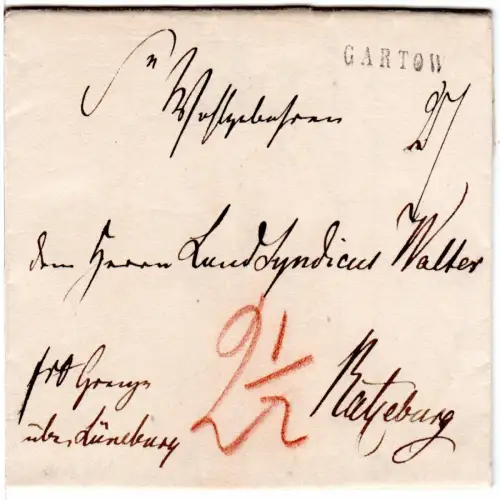 GARTOW
Sr Wohlgebohren
dem Herrn Land Syndicus Walter
2 1/2
Ratzeburg
frco Grenze
über Lüneburg